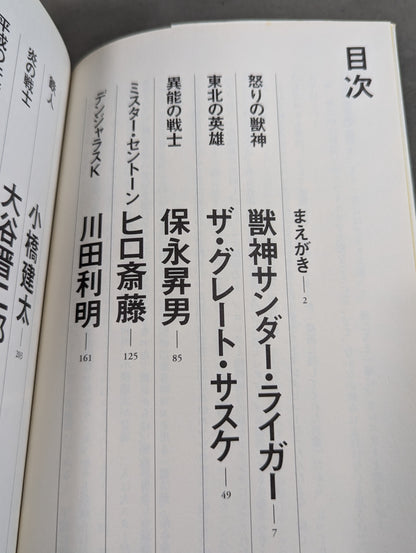 目次
まえがき—2
怒りの獣神
獣神サンダー・ライガー—7
東北の英雄
ザ・グレート・サスケ—49
異能の戦士
保永昇男—85
ミスター・セントーン
ヒロ斎藤—125
デンジャラスK
川田利明—161
鉄人
小橋建太—205
炎の戦士
大谷晋二郎